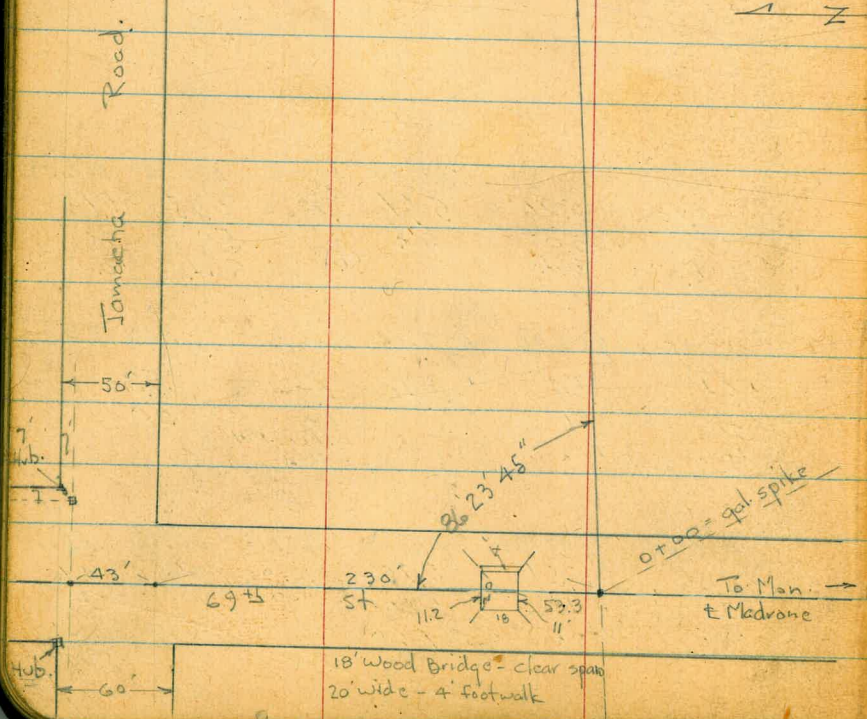 N
Jamacha Road.
50'
7'
Hub.
7
86° 23' 45"
0+00 = gal. spike
43'
69th St
230'
4'
20
11.2
18
11
53.3
To Mon.
℄ Madrone
Hub.
60'
18' Wood Bridge - clear span
20' wide - 4' footwalk